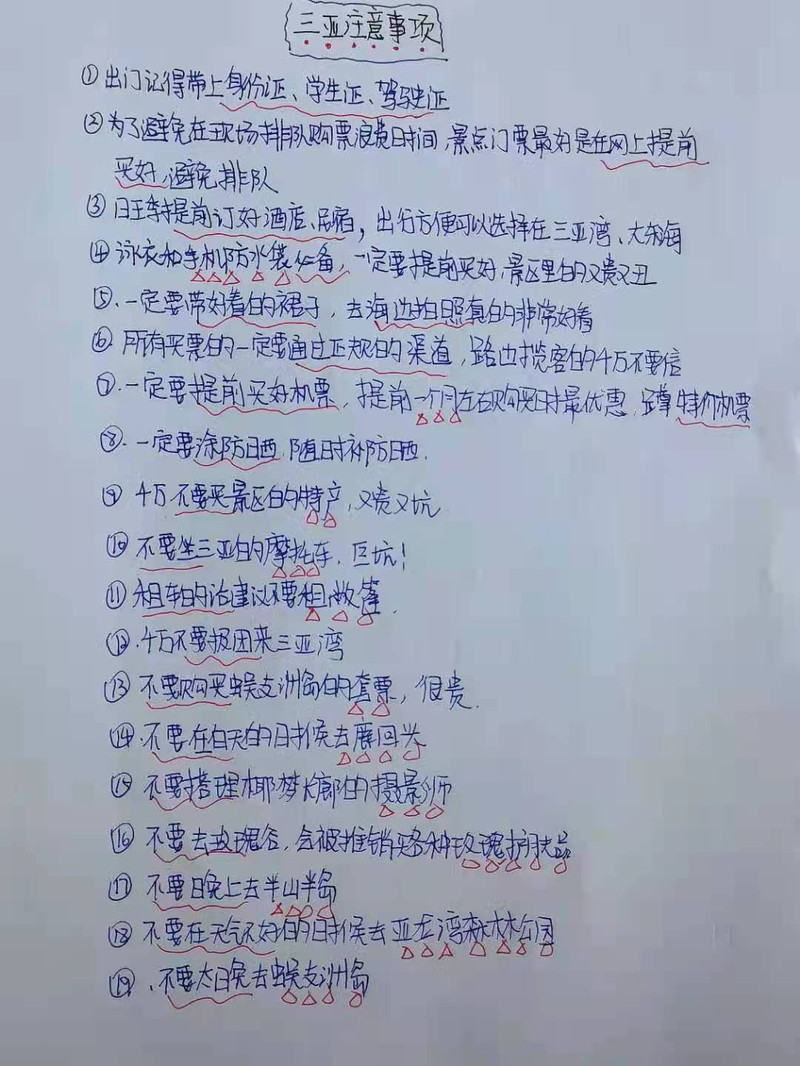 三亚注意事项
①出门记得带上身份证、学生证、驾驶证
②为了避免在现场排队购票浪费时间,景点门票最好是在网上提前
买好,避免排队
③旺季提前订好酒店、民宿,出行方便可以选择在三亚湾、大东海
④泳衣和手机防水袋必备,一定要提前买好,景区里的又贵又丑
⑤.一定要带好看的裙子,去海边拍照真的非常好看
⑥ 所有买票的一定要通过正规的渠道,路边揽客的千万不要信
⑦.一定要提前买好机票,提前一个月左右购买时最优惠,蹲特价机票
⑧.一定要涂防晒,随时补防晒.
⑨ 千万不要买景区的特产,又贵又坑
⑩不要坐三亚的摩托车,巨坑!
⑪租车的话建议不要租敞篷.
⑫.千万不要报团来三亚湾
⑬不要购买蜈支洲岛的套票,很贵.
⑭.不要在白天的时候去鹿回头
⑮不要搭理椰梦长廊的摄影师
⑯不要去玫瑰谷,会被推销买各种玫瑰护肤品
⑰不要晚上去半山半岛
⑱不要在天气不好的时候去亚龙湾森林公园
⑲、不要太晚去蜈支洲岛